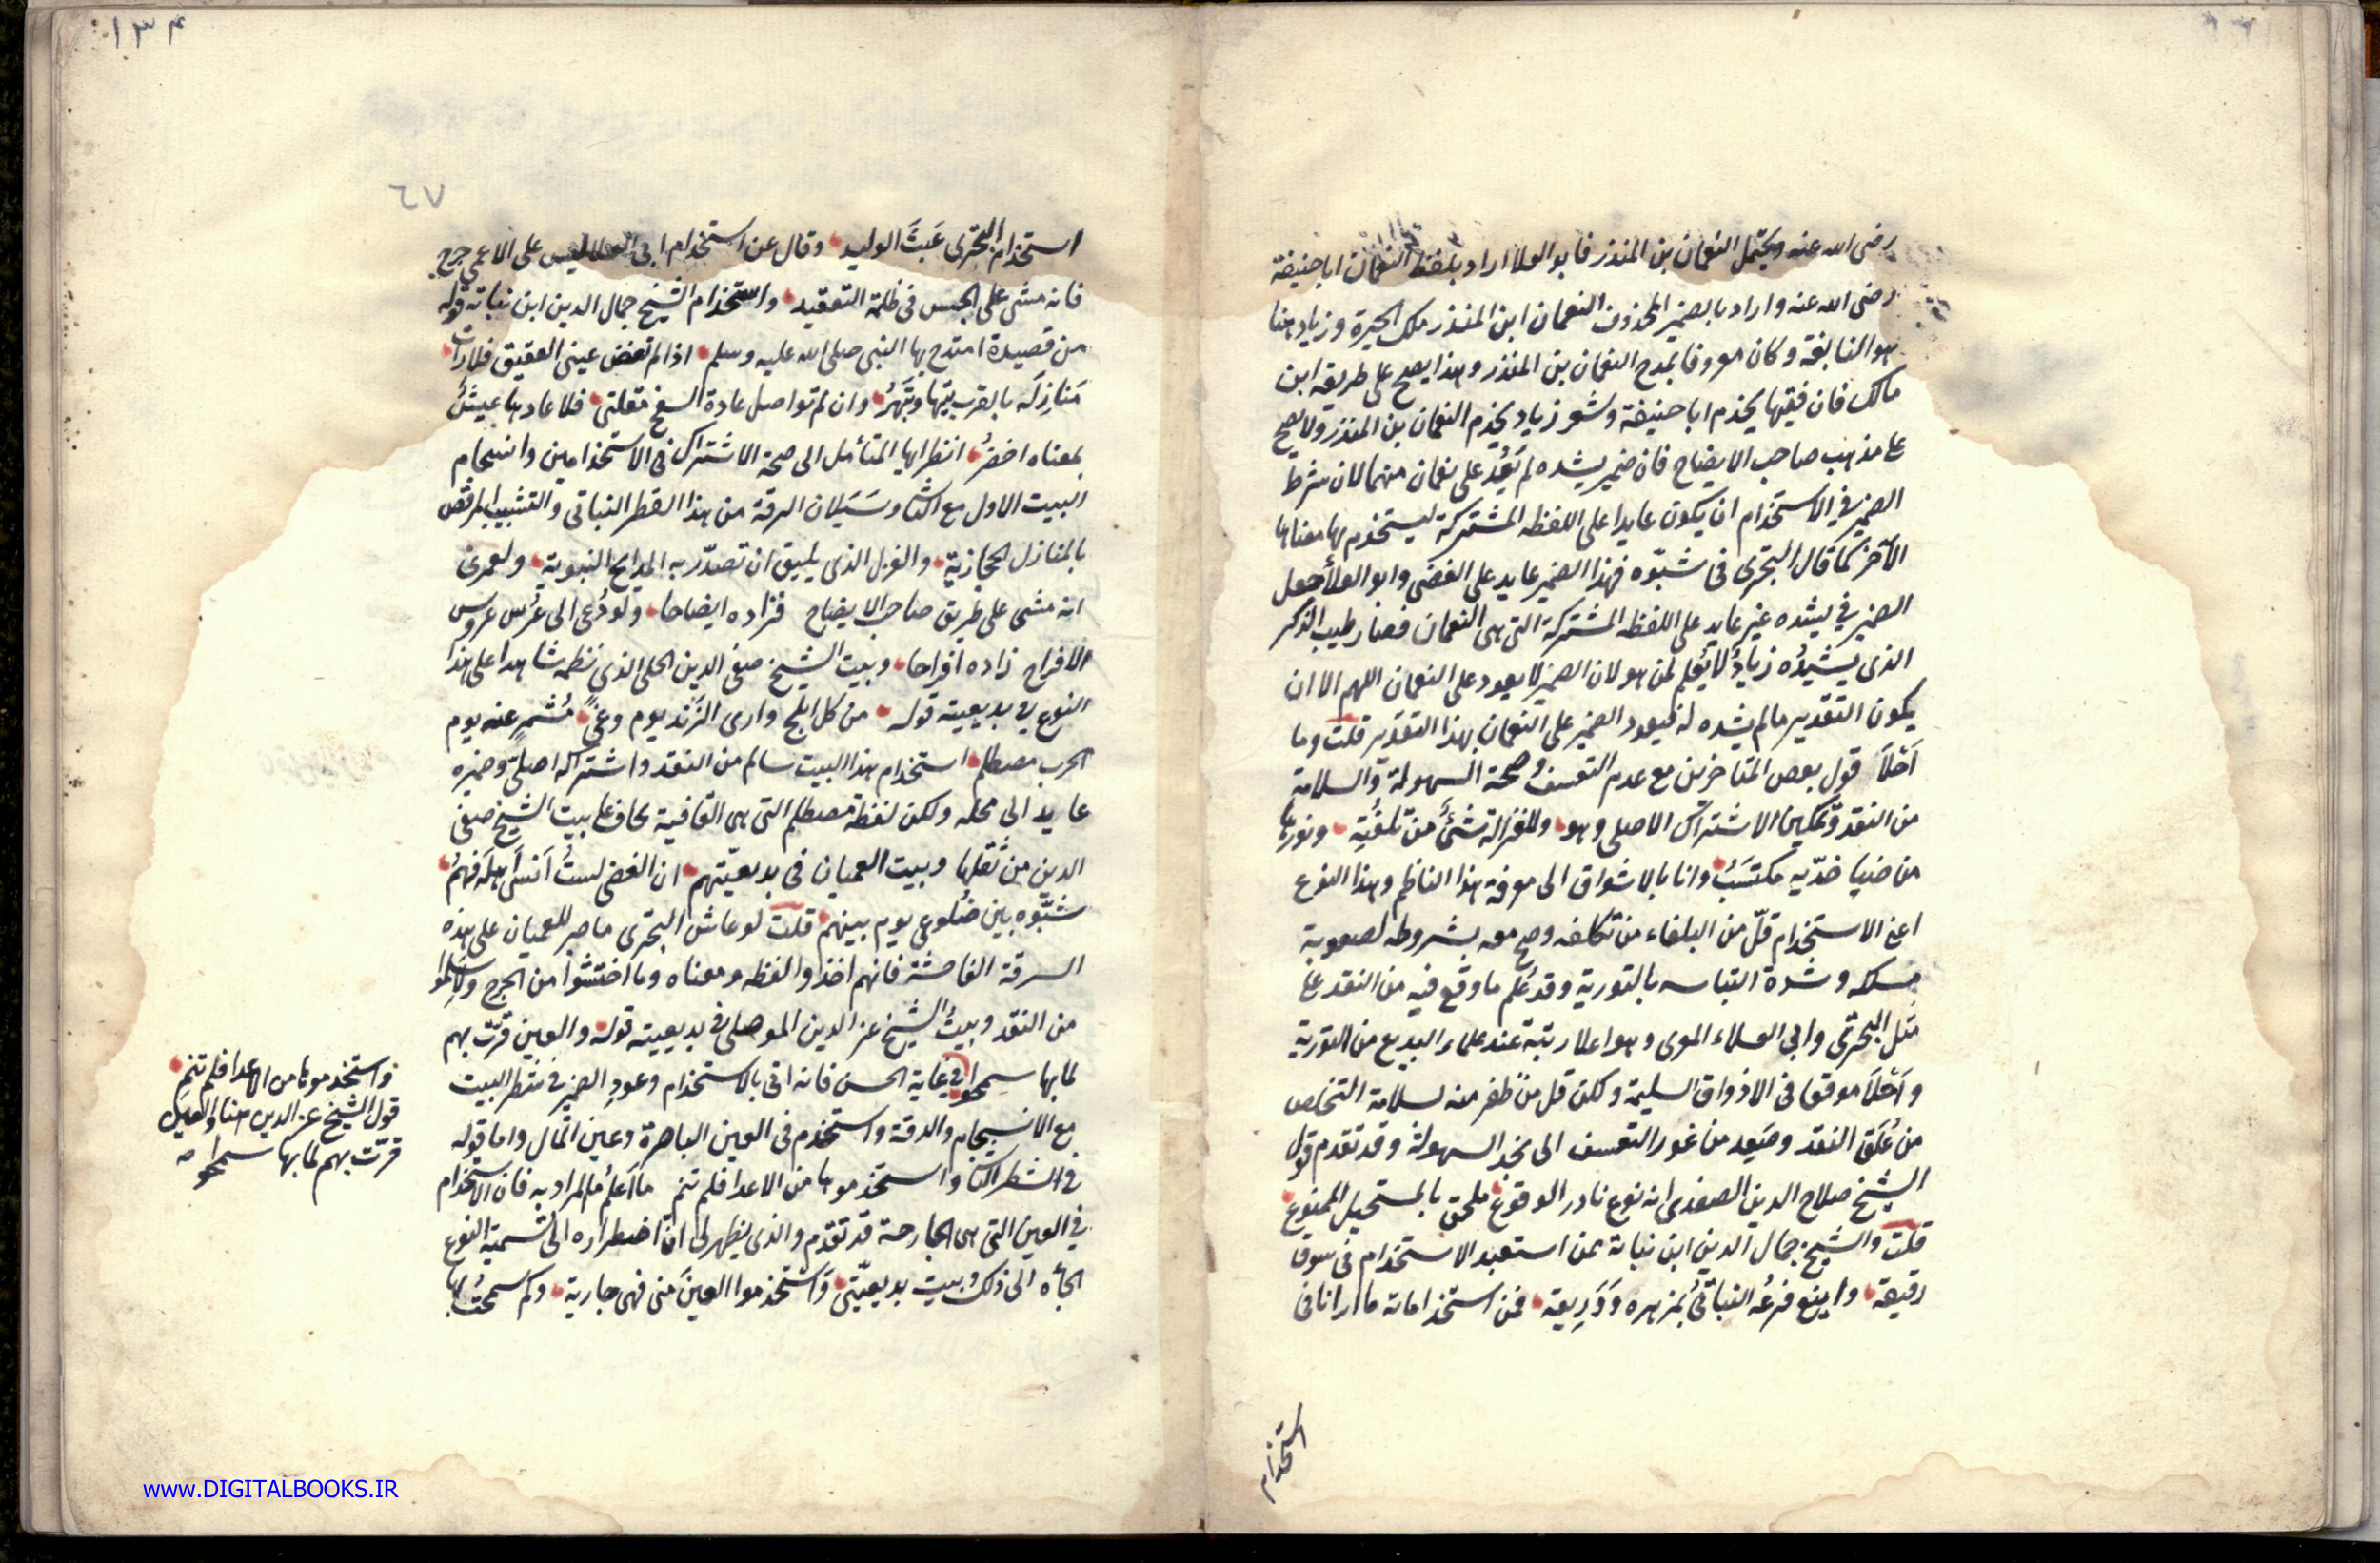 رضى الله عنه ويحتمل النعمان بن المنذر فابو العلا اراد بلفظ النعمان ابا حنيفة
رضى الله عنه واراد بالضمير المحذوف النعمان ابن المنذر ملك الحيرة وزياد هنا
هو النابغة وكان معروفا بمدح النعمان بن المنذر وهذا يصح على طريقة ابن
مالك فان فقيها يخدم ابا حنيفة وشعر زياد يخدم النعمان بن المنذر ولا يصح
على مذهب صاحب الايضاح فان ضمير يشده لم يَعُد على نعمان منهما لان شرط
الضمير في الاستخدام ان يكون عايدا على اللفظه المشتركة ليستخدم بها معناها
الآخر كما قال البحترى فى شبّوه فهذا الضمير عايد على الغضى وابو العلا جعل
الضمير في يشده غير عايد على اللفظه المشتركة التى هى النعمان فصار طيب الذكر
الذى يشيدُه زيادٌ لا يُعلم لمن هو لان الضمير لا يعود على النعمان اللهم الا ان
يكون التقدير ما لم يشده له فيعود الضمير على النعمان بهذا التقدير قلت وما
اَحْلَا قول بعض المتاخرين مع عدم التعسف وصحة السهولة والسلامة
من النقد وتمكين الاشتراك الاصلى وهو وللغزالة شئٌ من تلفُّتِهِ ونورها
من ضيا خدّيه مكتسَبُ وانا بالاشواق الى معرفة هذا الناظم وهذا النوع
اعنى الاستخدام قلّ من البلغاء من تكلفه وصح معه بشروطه لصعوبة
مسلكه وشدة التباسه بالتورية وقد عُلم ما وقع فيه من النقد على
مثل البحترى وابى العلاء المعرى وهو اعلا رتبة عند علماء البديع من التورية
واَحْلَا موقعا فى الاذواق السليمة ولكن قل من ظفر منه لسلامة التخلص
من عُلَق النقد وصَعِد من غور التعسف الى نجد السهولة وقد تقدم قول
الشيخ صلاح الدين الصفدى انه نوع نادر الوقوع ملحق بالمستحيل الممنوع
قلت والشيخ جمال الدين ابن نباتة ممن استعبد الاستخدام فى سوق
رقيقه واينع فرعُه النباتىُّ بمزهره وَوَرِيقه فمن استخداماته ما ارانا فى
استخدام
١٣٤
٦٧
استخدام البحترى عَبَثَ الوليد وقال عن استخدام ابى العلا ليس على الاعمى حرج
فانه مشى على الحبس فى ظلمة التعقيد واستخدام الشيخ جمال الدين ابن نباته قوله
من قصيدة امتدح بها النبى صلى الله عليه وسلم اذا لم تفض عينى العقيق فلا رات
مَنازِلَه بالقرب تبهَا وتَبْهَرُ وان لم تواصل عادة السفح مقلتى فلا عادها عيشٌ
بمعناه اخضرُ انظر ايها المتأمل الى صحة الاشتراك فى الاستخدامين وانسجام
البيت الاول مع الثانى وسَيَلان الرقة من هذا القطر النباتى والتشبيب المرقص
بالمنازل الحجازية والغزل الذى يليق ان تصدّر به المدايح النبوية ولعمرى
انه مشى على طريق صاحب الايضاح فزاده ايضاحا ولو دُعى الى عُرس عروس
الافراح زاده افراحا وبيت الشيخ صفى الدين الحلى الذى نظمه شاهدا على هذا
النوع في بديعيته قوله من كل ابلج وارى الزَند يوم وغىً مُشمرٍ عنه يوم
الحرب مصطلم استخدام هذا البيت سالم من النقد واشتراكه اصلىّ وضميره
عايد الى محله ولكن لفظة مصطلم التى هى القافية يخاف على بيت الشيخ صفى
الدين من ثقلها وبيت العميان فى بديعيّتهم ان الغضى لستُ اَنسَى اَهلَه فهُمُ
شبّوه بين ضلوعى يوم بينهم قلت لو عاش البحترى ما صبر للعميان على هذه
السرقة الفاحشة فانهم اخذوا لفظه ومعناه وما اختشوا من الحرج ولا سلموا
من النقد وبيتُ الشيخ عز الدين الموصلى في بديعيته قوله والعين قرّت بهم
لما بها سمحوا فى غاية الحسن فانه اتى بالاستخدام وعود الضمير فى شطر البيت
مع الانسجام والدقة واستخدم فى العين الباصرة وعين المال واما قوله
في الشطر الثانى واستخدموها من الاعدا فلم تنم ما اَعلمُ ما المراد به فان الاستخدام
في العين التى هى الجارحة قد تقدم والذى يظهر لى انّ اضطراره الى تسمية النوع
الجأه الى ذلك وبيت بديعيّتى وَاستخدموا العينَ منى فهى جارية وكم سمحتُ بها
واستخدموها من الاعدا فلم تنم
قول الشيخ عز الدين هنا والعين
قرّت بهم لما بها سمحوا
www.DIGITALBOOKS.IR